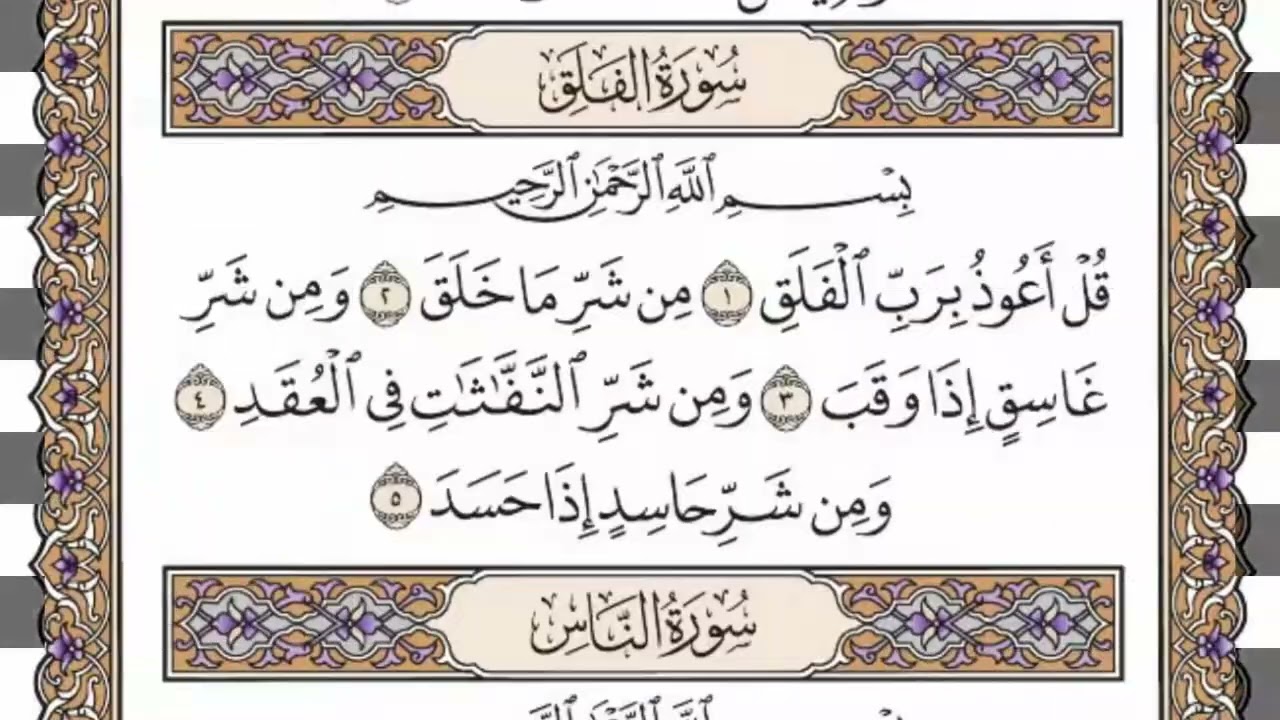 سُورَةُ الفَلَقِ
بِسۡمِ ٱللَّهِ ٱلرَّحۡمَٰنِ ٱلرَّحِيمِ
قُلۡ أَعُوذُ بِرَبِّ ٱلۡفَلَقِ ١ مِن شَرِّ مَا خَلَقَ ٢ وَمِن شَرِّ
غَاسِقٍ إِذَا وَقَبَ ٣ وَمِن شَرِّ ٱلنَّفَّٰثَٰتِ فِي ٱلۡعُقَدِ ٤
وَمِن شَرِّ حَاسِدٍ إِذَا حَسَدَ ٥
سُورَةُ النَّاسِ